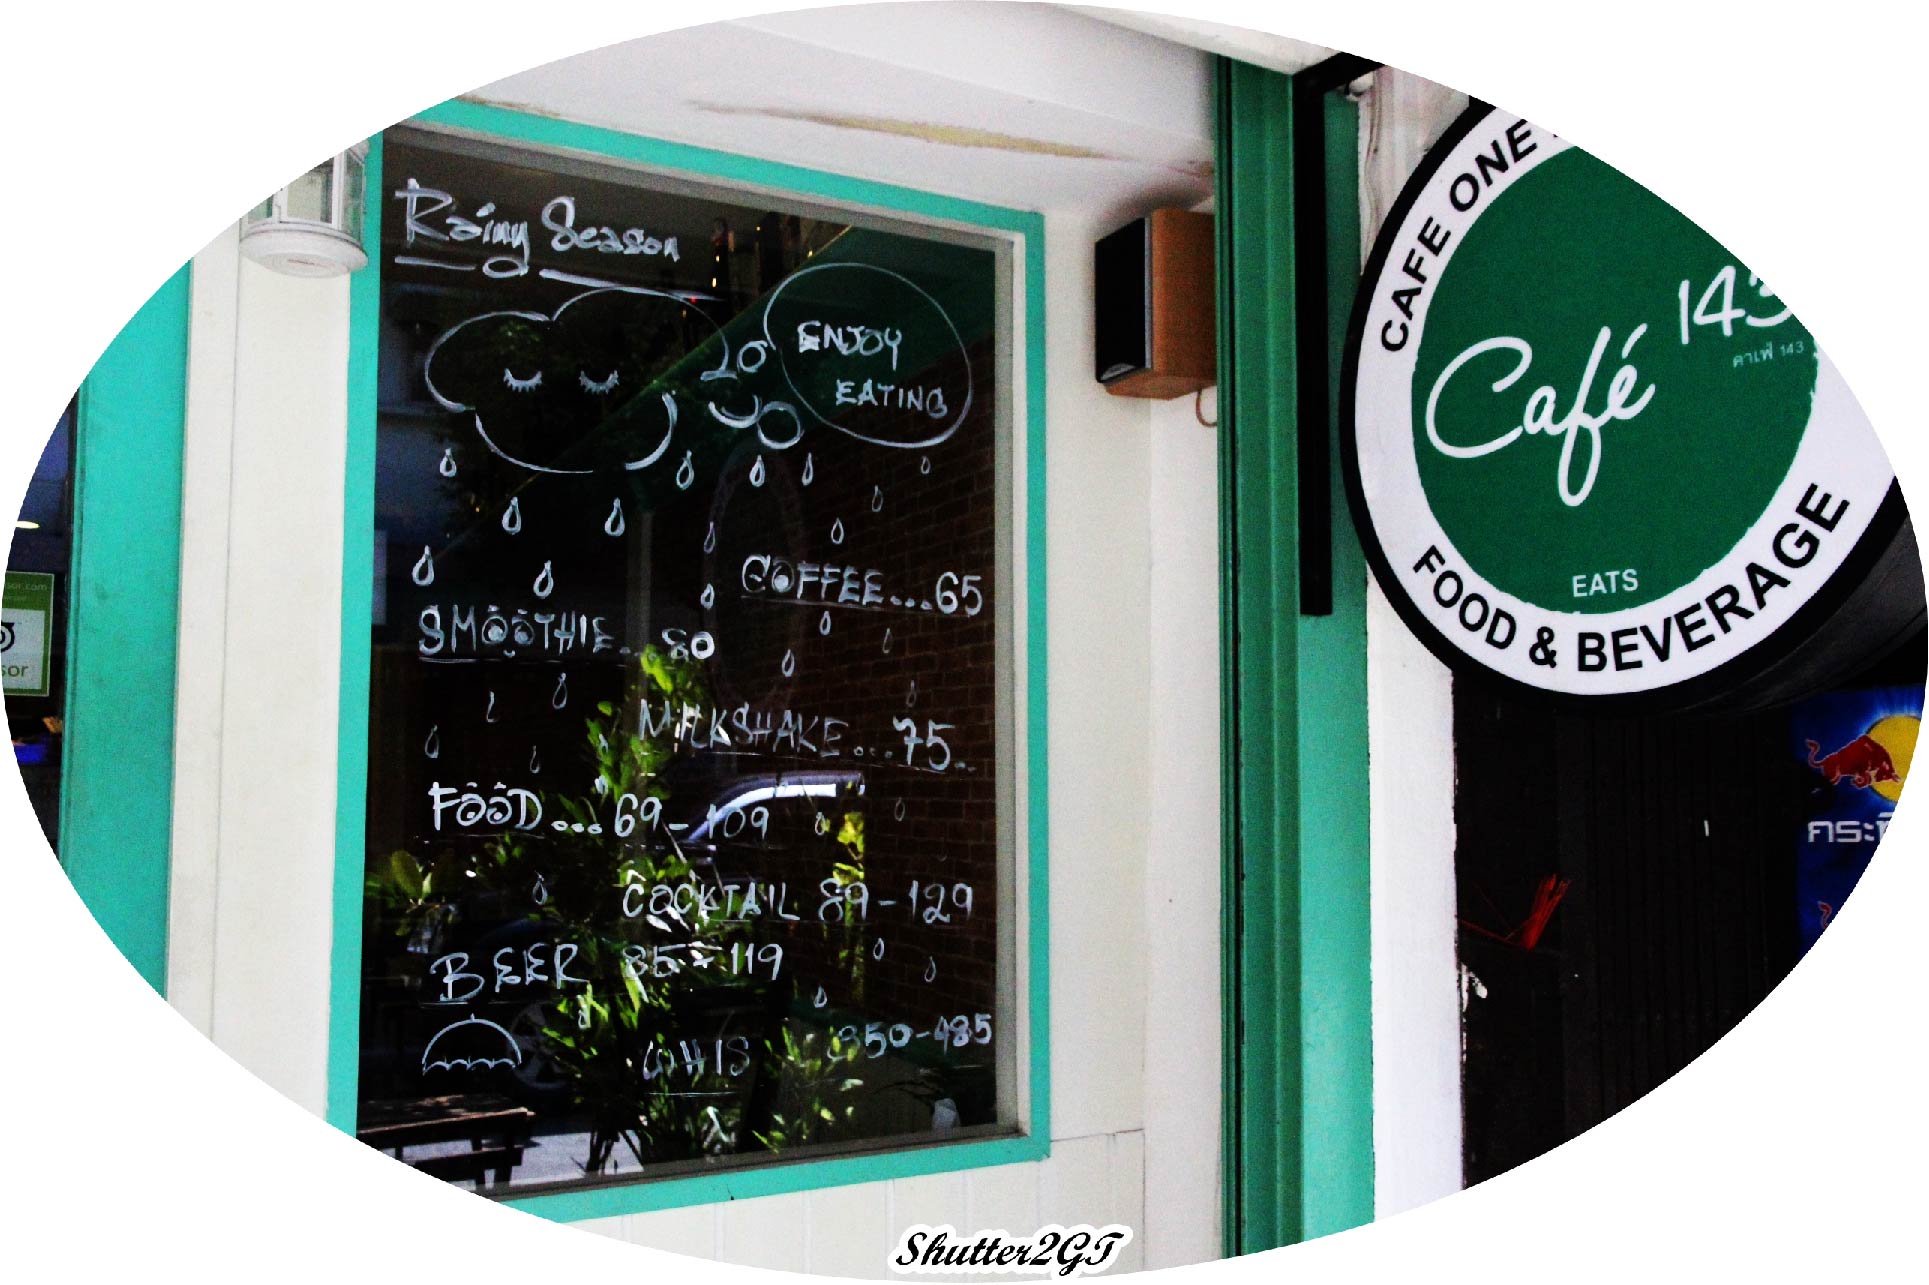 Rainy Season
ENJOY
EATING
COFFEE...65
SMOOTHIE...80
MILKSHAKE...75..
FOOD...69-109
COCKTAIL 89-129
BEER 85-119
WHIS 350-485
CAFE ONE
Café 143
คาเฟ่ 143
EATS
FOOD & BEVERAGE
sor.com
sor
Shutter2GT